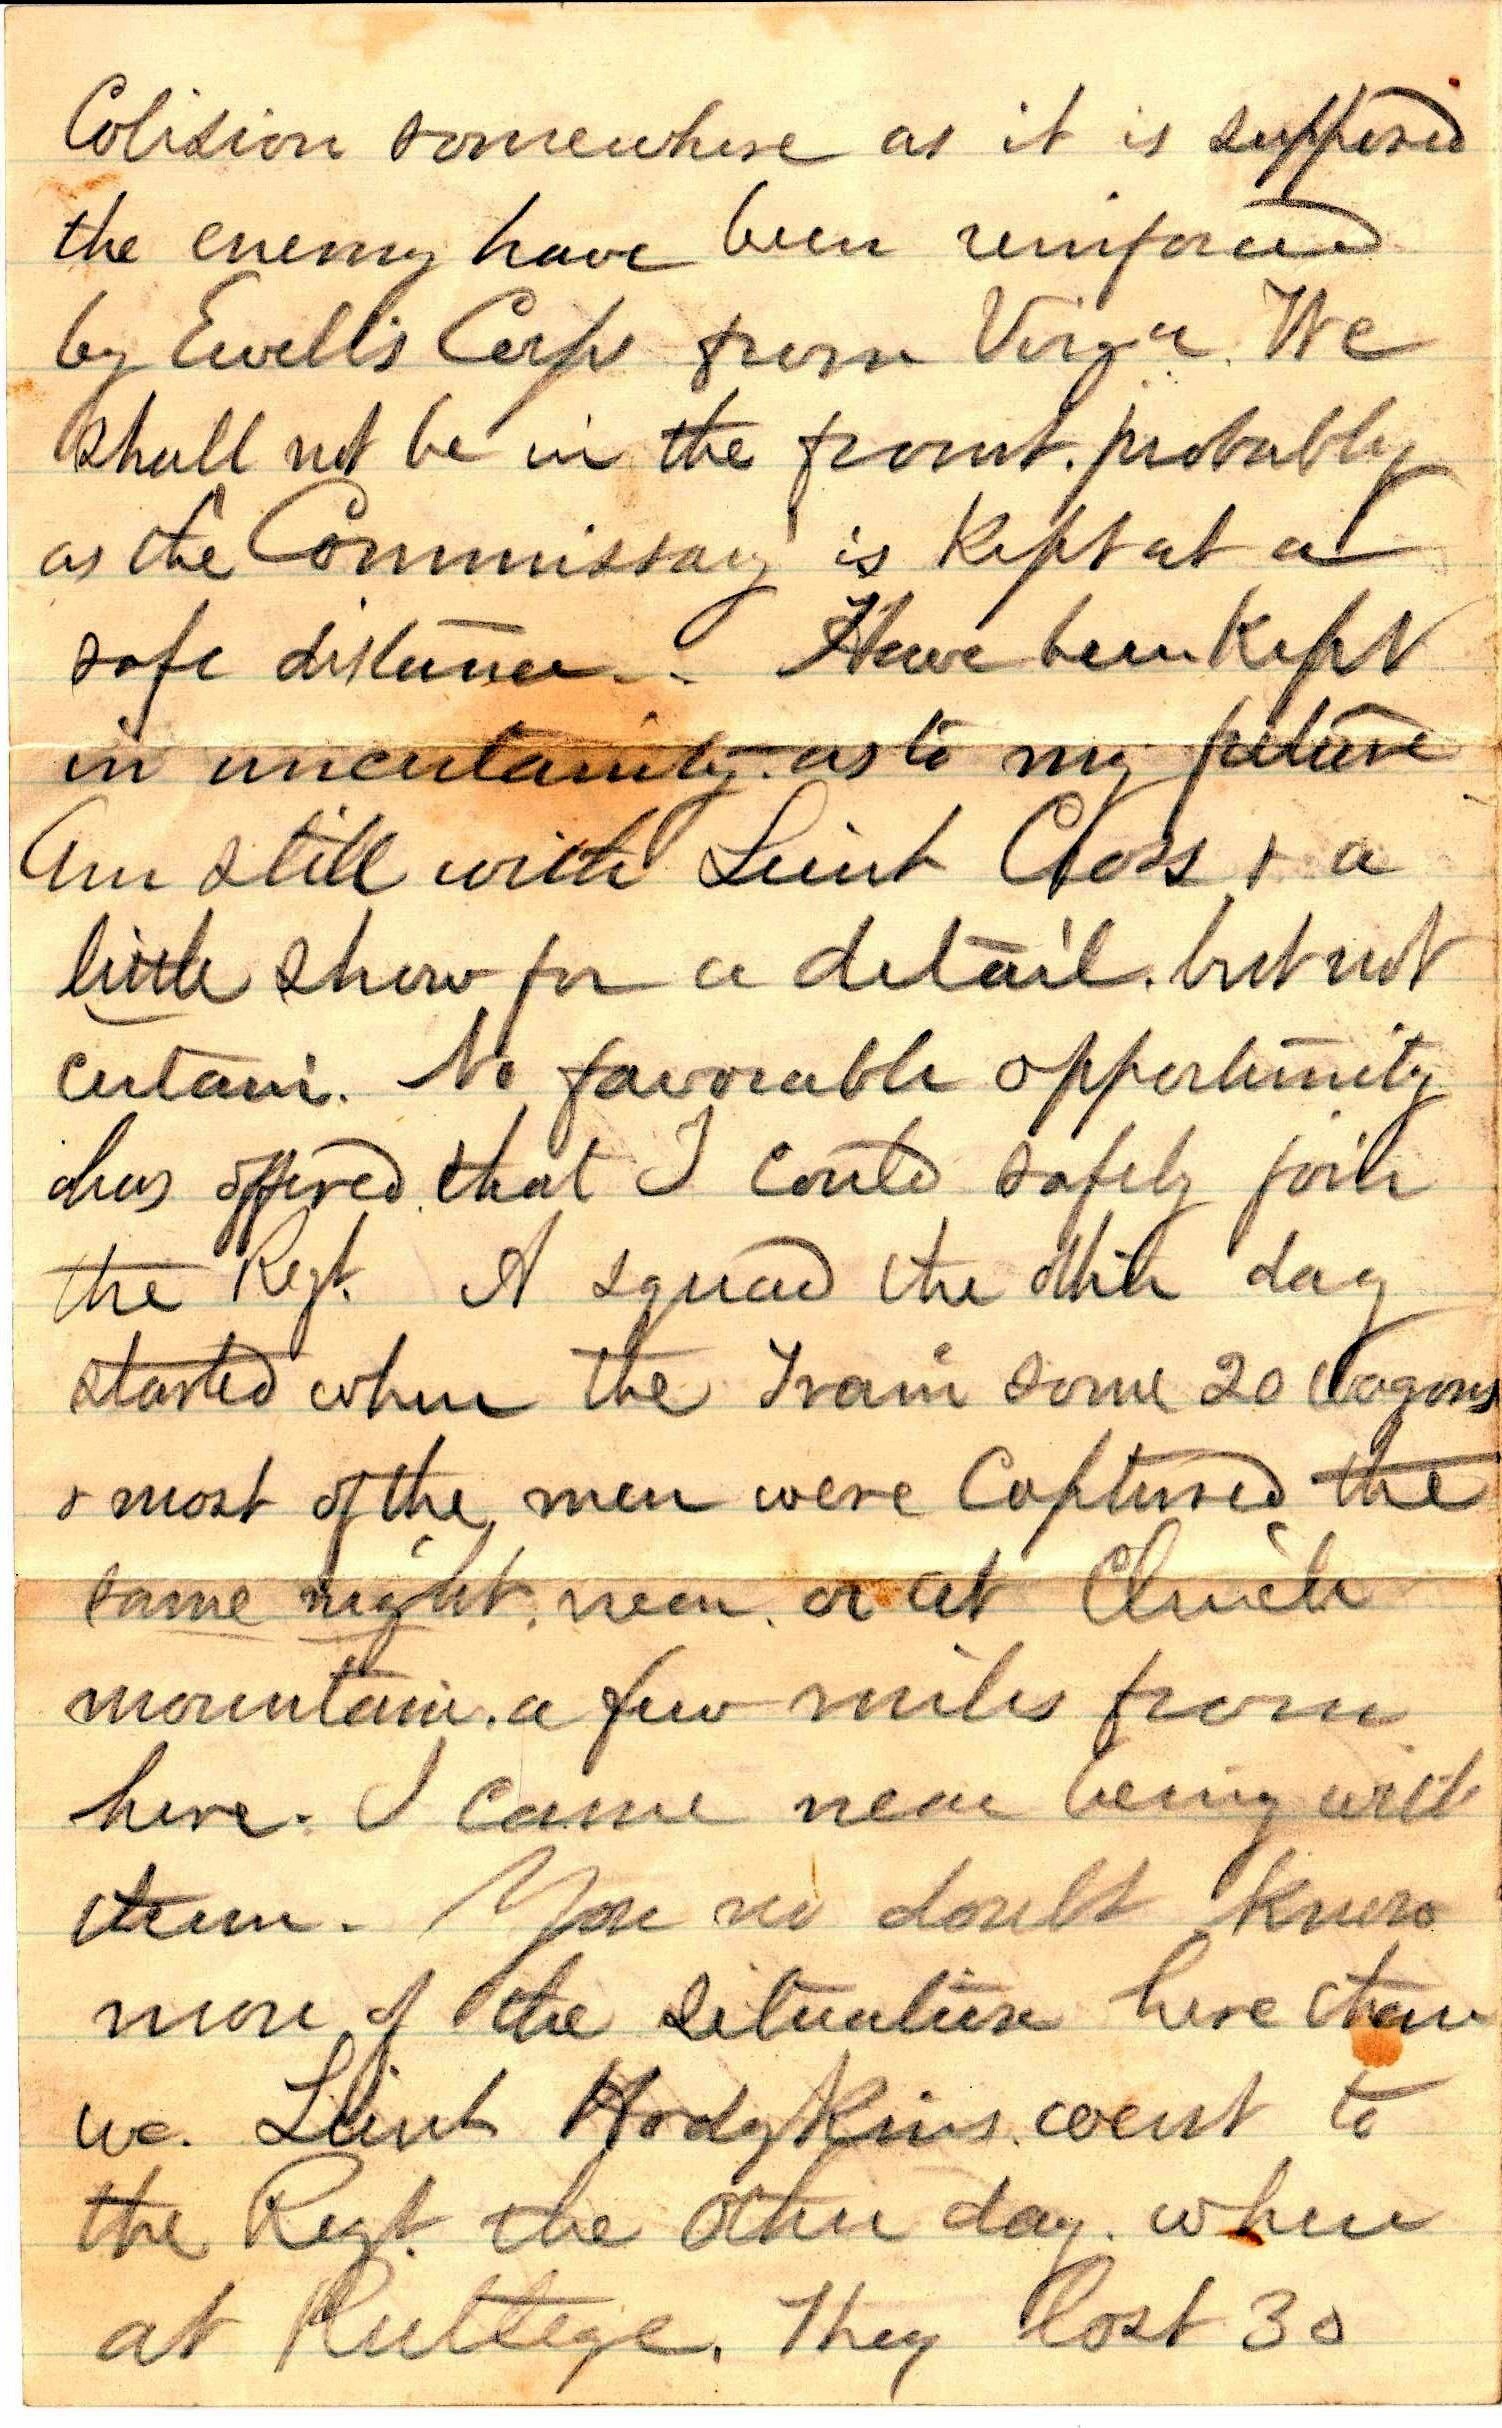 Colision somewhere as it is supposed
the enemy have been reinforced
by Ewell's Corps from Virga. We
shall not be in the front. probably
as the Commissary is Kept at a
safe distance. . Have been Kept
in uncertainity. as to my future
Am still with Leiut Closs + a
little show for a detail. but not
certain. No favorable opportunity
has offered that I could safely join
the Regt. A squad the other day
started when the Train some 20 wagons
+ most of the men were Captured the
same night. near. or at Clinch
mountain. a few miles from
here. I came near being with
them. You no doubt know
more of the situation here than
we. Leiut Hodgkins. went to
the Regt. the other day. when
at Rutlege. They lost 30